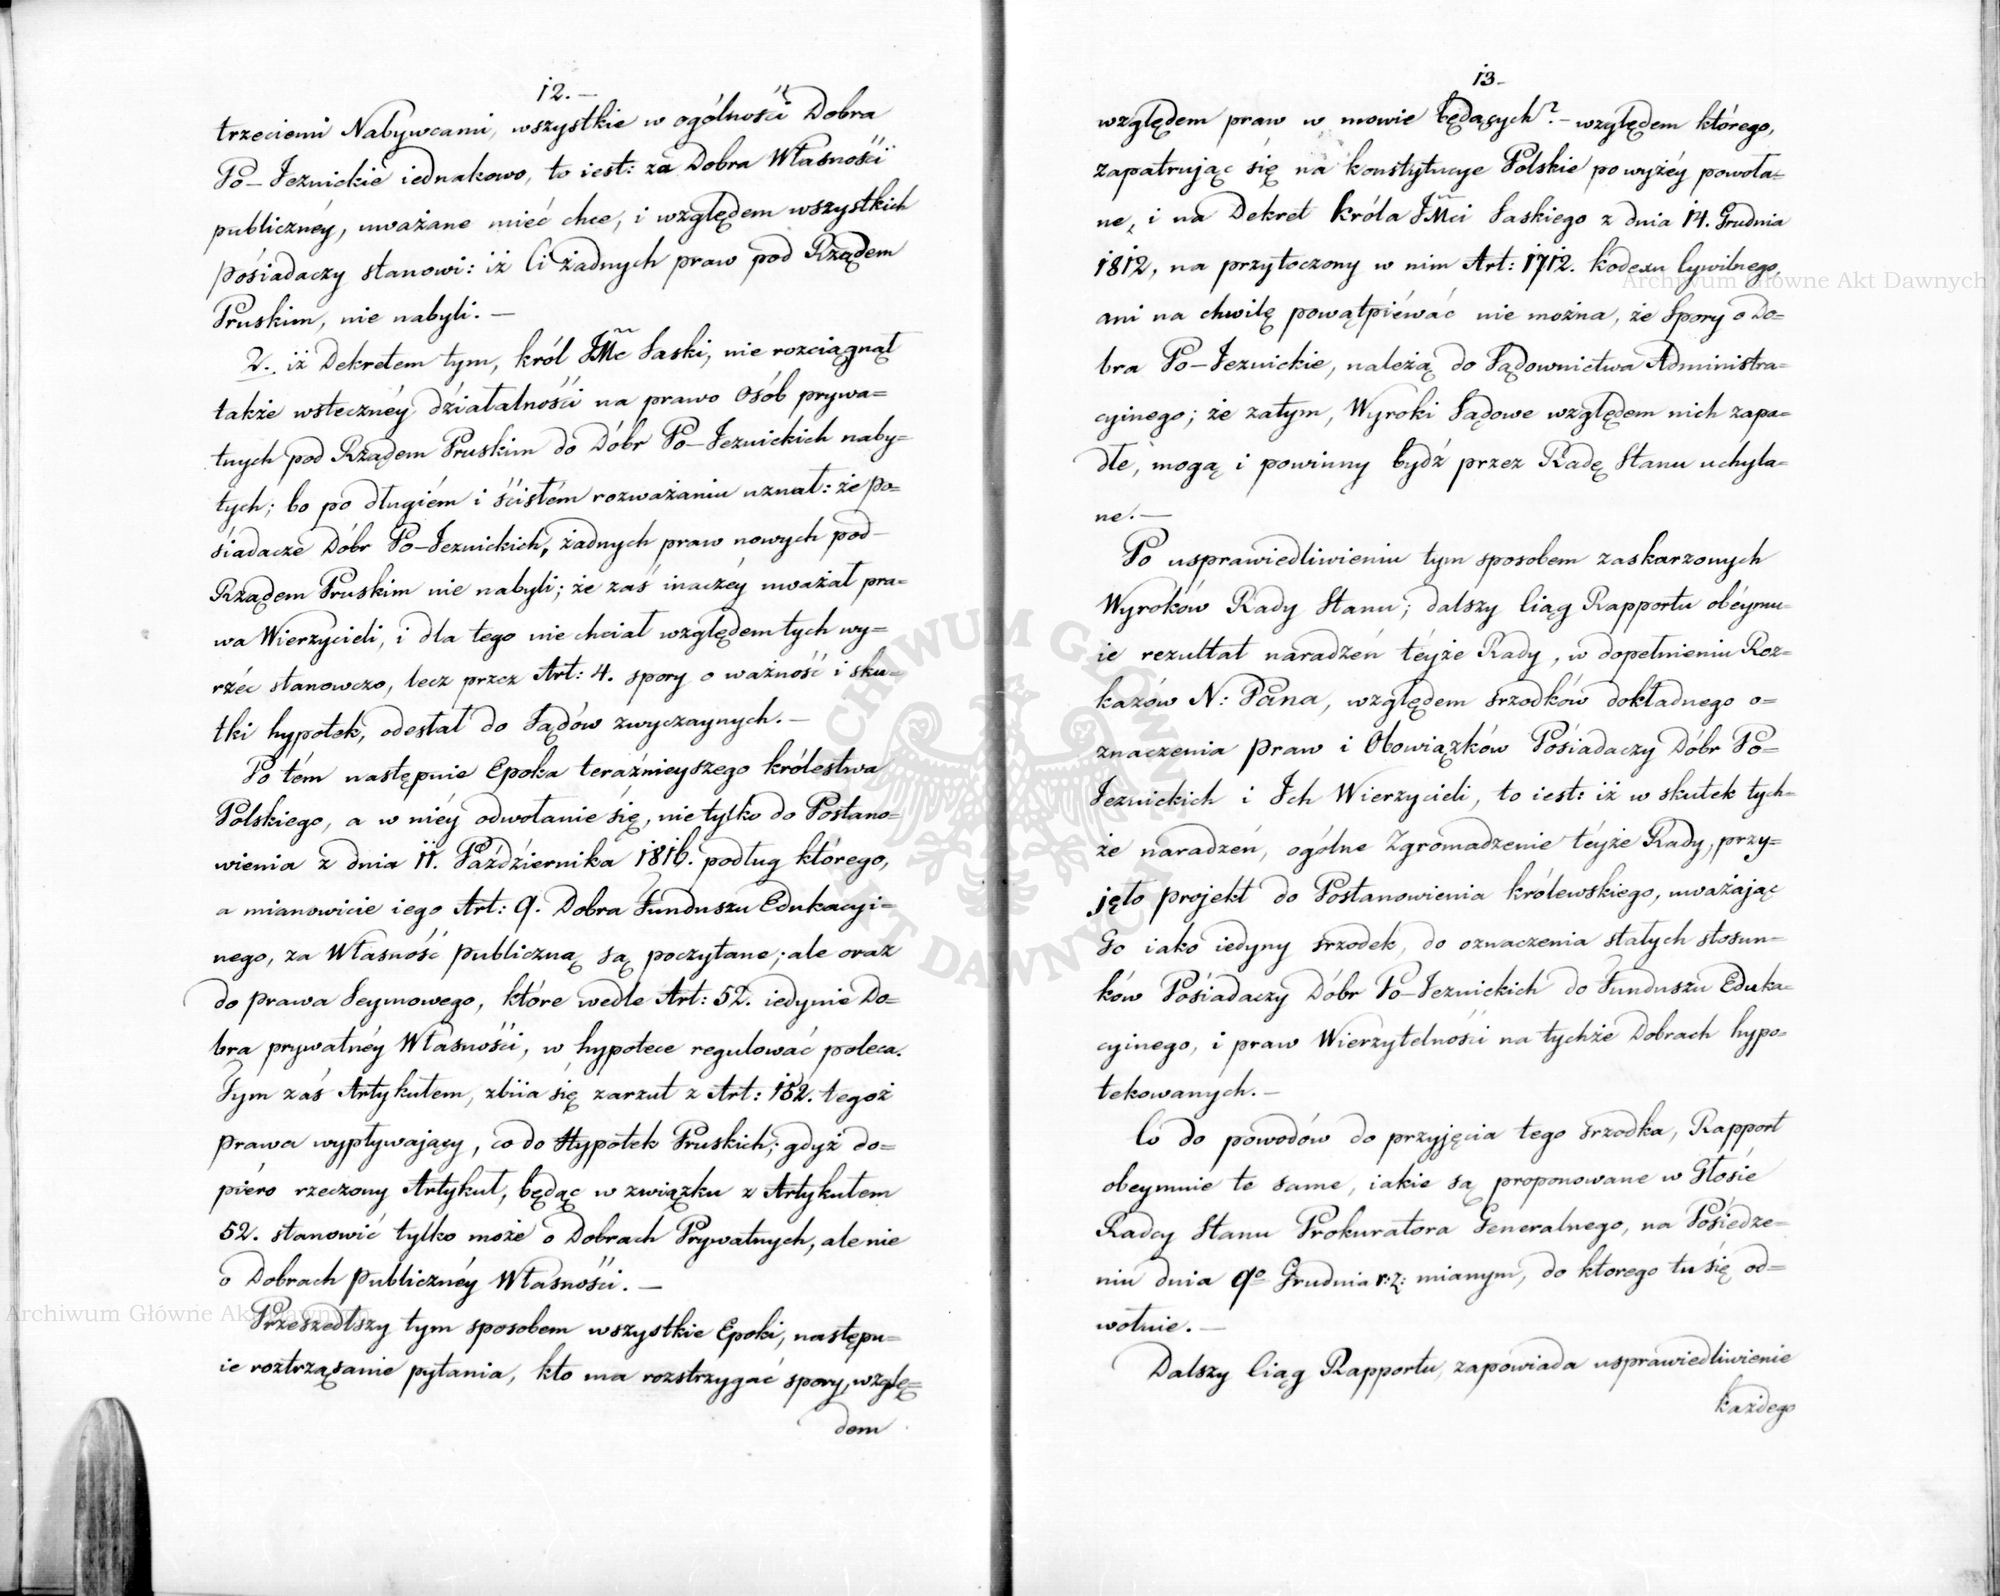 12.—
trzeciemi Nabywcami, wszystkie w ogólności Dobra
Po-Jezuickie iednakowo, to iest: za Dobra Własności
publicznéy, uważane mieć chce, i względem wszystkich
pośiadaczy stanowi: iż Ci żadnych praw pod Rządem
Pruskim, nie nabyli.—
2. iż Dekretem tym, król JMc Saski, nie rozciągnął
także wstecznéy działalności na prawo Osób prywa=
tnych pod Rządem Pruskim do Dóbr Po-Jezuickich naby=
tych; bo po długiém i ścisłém rozważaniu uznał: że po=
śiadacze Dóbr Po-Jezuickich, żadnych praw nowych pod
Rządem Pruskim nie nabyli; że zaś inaczéy uważał pra=
wa Wierzycieli, i dla tego nie chciał względem tych wy=
rzéc stanowczo, lecz przez Art: 4. spory o ważność i sku=
tki hypotek, odesłał do Sądów zwyczaynych.—
Po tém następnie Epoka teraźnieyszego królestwa
Polskiego, a w niéy odwołanie się, nie tylko do Postano=
wienia z dnia 11. Października 1816. podług którego,
a mianowicie iego Art: 9. Dobra Funduszu Edukacyi=
nego, za Własność publiczną są poczytane; ale oraz
do prawa Seymowego, które wedle Art: 52. iedynie Do=
bra prywatnéy Własności, w hypotece regulować poleca.
Tym zaś Artykułem, zbiia się zarzut z Art: 152. tegoż
prawa wypływaiący, co do Hypotek Pruskich; gdyż do=
piéro rzeczony Artykuł, będąc w związku z Artykułem
52. stanowić tylko może o Dobrach Prywatnych, ale nie
o Dobrach publicznéy Własności.—
Przeszedłszy tym sposobem wszystkie Epoki, następu=
ie roztrząsanie pytania, kto ma rozstrzygać spory, wzglę=
dem
13-
względem praw w mowie będących?- względem którego,
zapatruiąc się na konstytucye Polskie powyżéy powoła=
ne, i na Dekret króla JMci Saskiego z dnia 14. Grudnia
1812, na przytoczony w nim Art: 1712. kodexu Cywilnego,
ani na chwilę powątpiéwać nie można, że Spory o Do=
bra Po-Jezuickie, należą do Sądownictwa Administra=
cyinego; że zatym, Wyroki Sądowe względem nich zapa=
dłe, mogą i powinny bydź przez Radę Stanu uchyla=
ne.—
Po usprawiedliwieniu tym sposobem zaskarzonych
Wyroków Rady Stanu; dalszy Ciąg Rapportu obéymu=
ie rezultat naradzéń téyże Rady, w dopełnieniu Roz=
kazów N: Pana, względem srzodków dokładnego o=
znaczenia praw i Obowiązków Pośiadaczy Dóbr Po=
Jezuickich i Ich Wierzycieli, to iest: iż w skutek tych=
że naradzeń, ogólne Zgromadzenie téyże Rady, przy=
jęło projekt do Postanowienia królewskiego, uważając
Go iako iedyny srzodek, do oznaczenia stałych stosun=
ków Pośiadaczy Dóbr Po-Jezuickich do Funduszu Eduka=
cyinego, i praw Wierzytelności na tychże Dobrach hypo=
tekowanych.—
Co do powodów do przyjęcia tego srzodka, Rapport
obeymuie te same, iakie są proponowane w Głosie
Radcy Stanu Prokuratora Generalnego, na Pośiedze=
niu dnia 9º Grudnia r: z: mianym, do którego tu się od=
wołuie.—
Dalszy Ciąg Rapportu, zapowiada usprawiedliwienie
każdego
Archiwum Główne Akt Dawnych
Archiwum Główne Akt Dawnych
ARCHIWUM GŁÓWNE AKT DAWNYCH